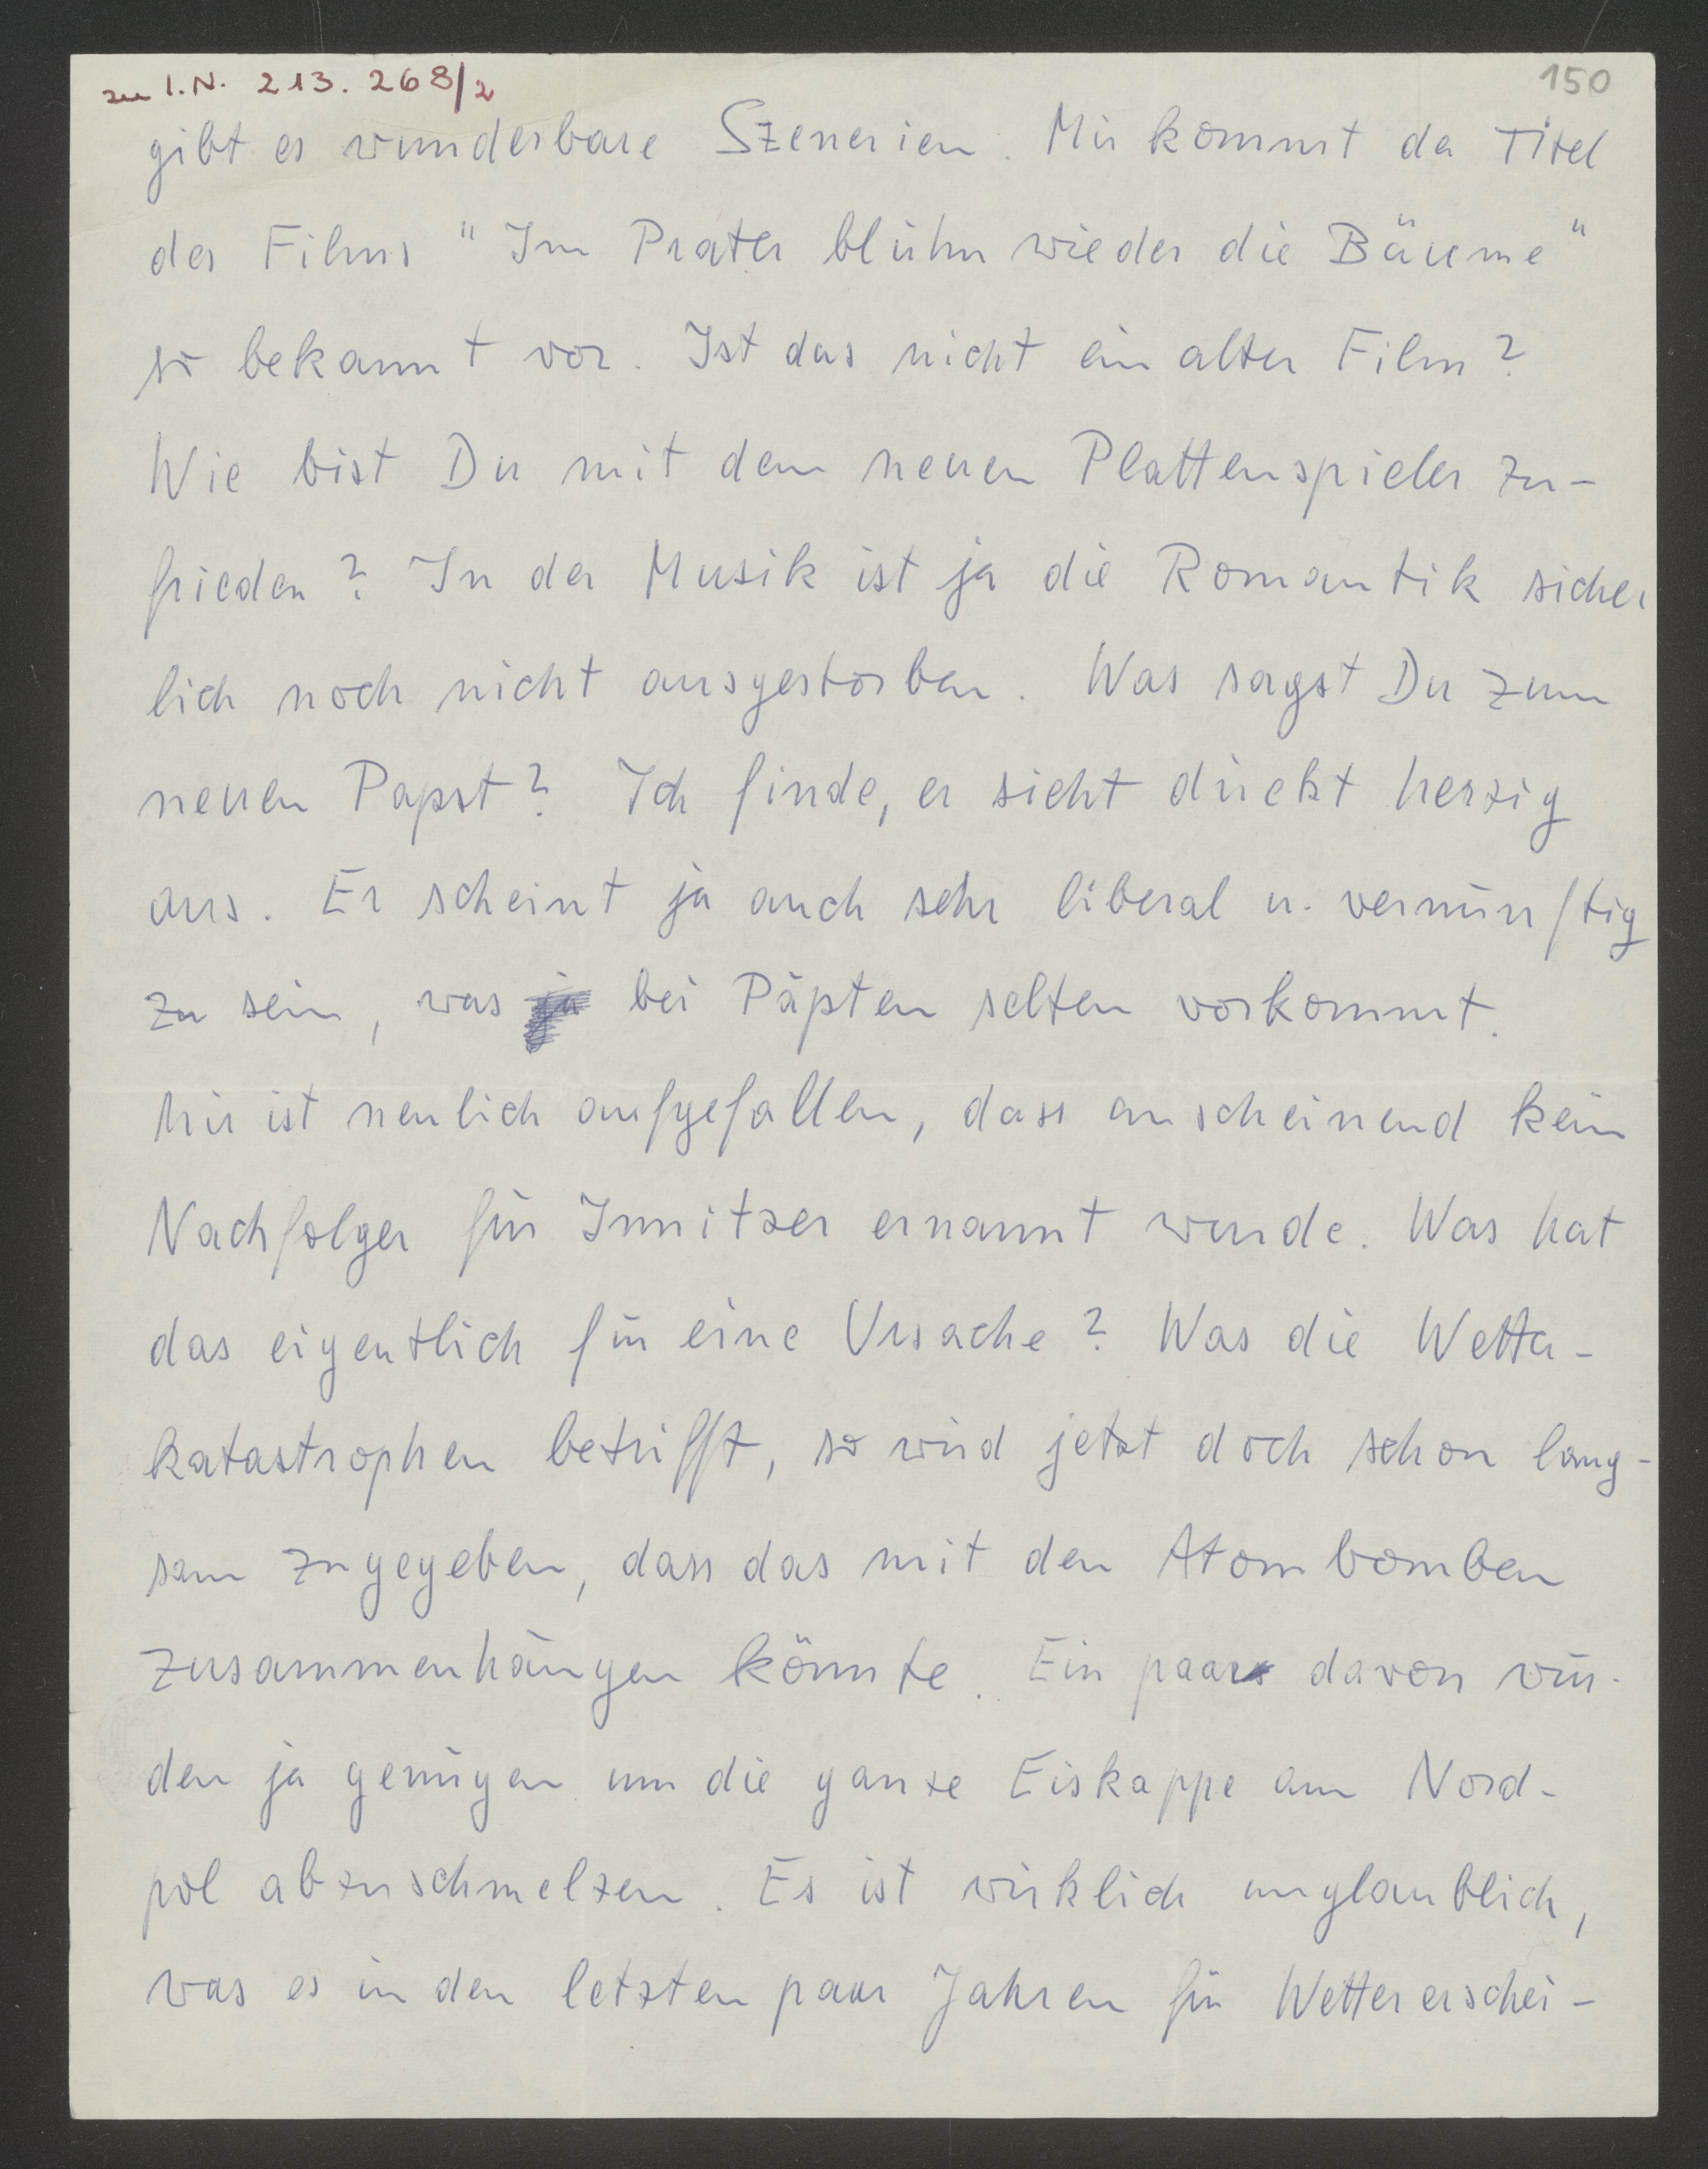 zu I.N. 213.268/2
150
gibt es wunderbare Szenerien. Mir kommt der Titel
des Films "Im Prater blühn wieder die Bäume"
so bekannt vor. Ist das nicht ein alter Film?
Wie bist Du mit dem neuen Plattenspieler zu-
frieden? In der Musik ist ja die Romantik sicher
lich noch nicht ausgestorben. Was sagst Du zum
neuen Papst? Ich finde, er sieht direkt herzig
aus. Er scheint ja auch sehr liberal u. vernünftig
zu sein, was ja bei Päpten selten vorkommt.
Mir ist neulich aufgefallen, dass anscheinend kein
Nachfolger für Innitzer ernannt wurde. Was hat
das eigentlich für eine Ursache? Was die Wetter-
katastrophen betrifft, so wird jetzt doch schon lang-
sam zugegeben, dass das mit den Atombomben
zusammenhängen könnte. Ein paar davon wür-
den ja genügen um die ganze Eiskappe am Nord-
pol abzuschmelzen. Es ist wirklich unglaublich,
was es in den letzten paar Jahren für Wettererschei-